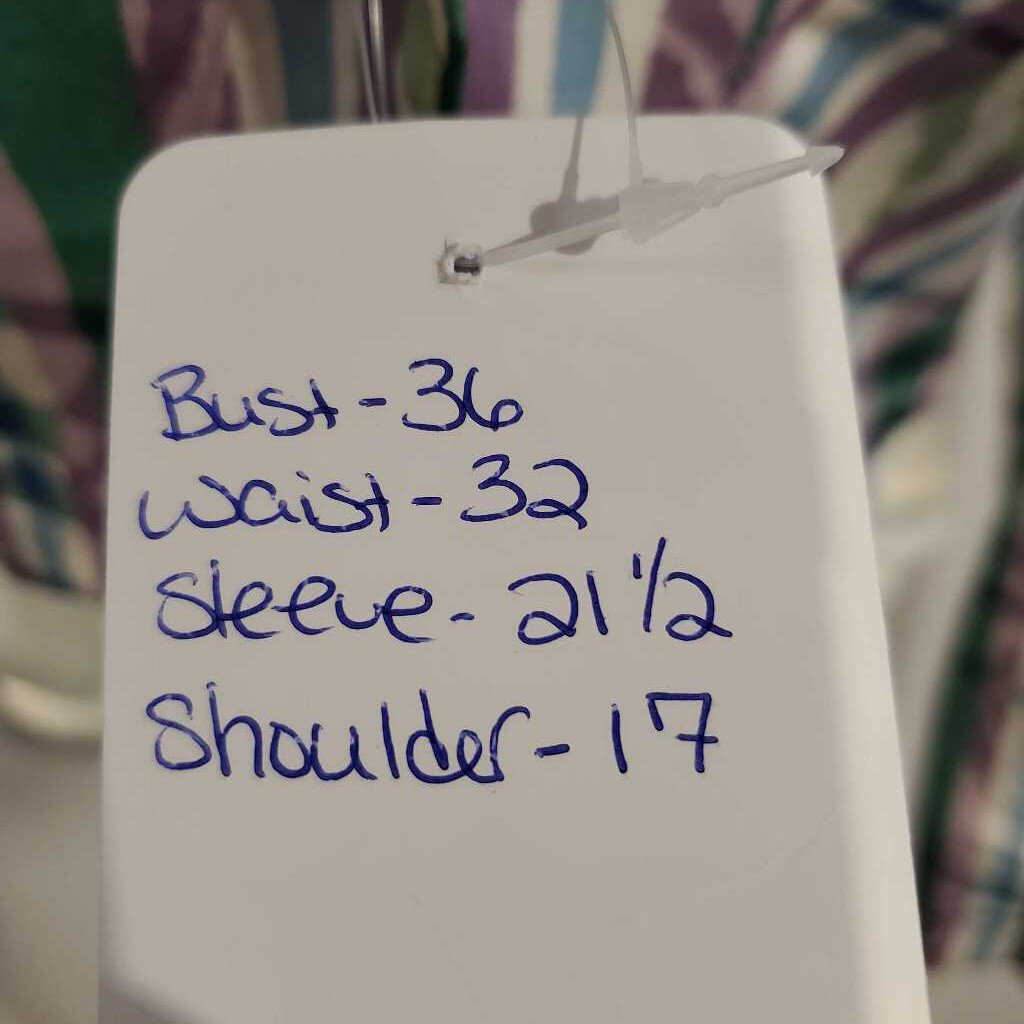 Bust - 36
Waist - 32
Sleeve - 21 1/2
Shoulder - 17